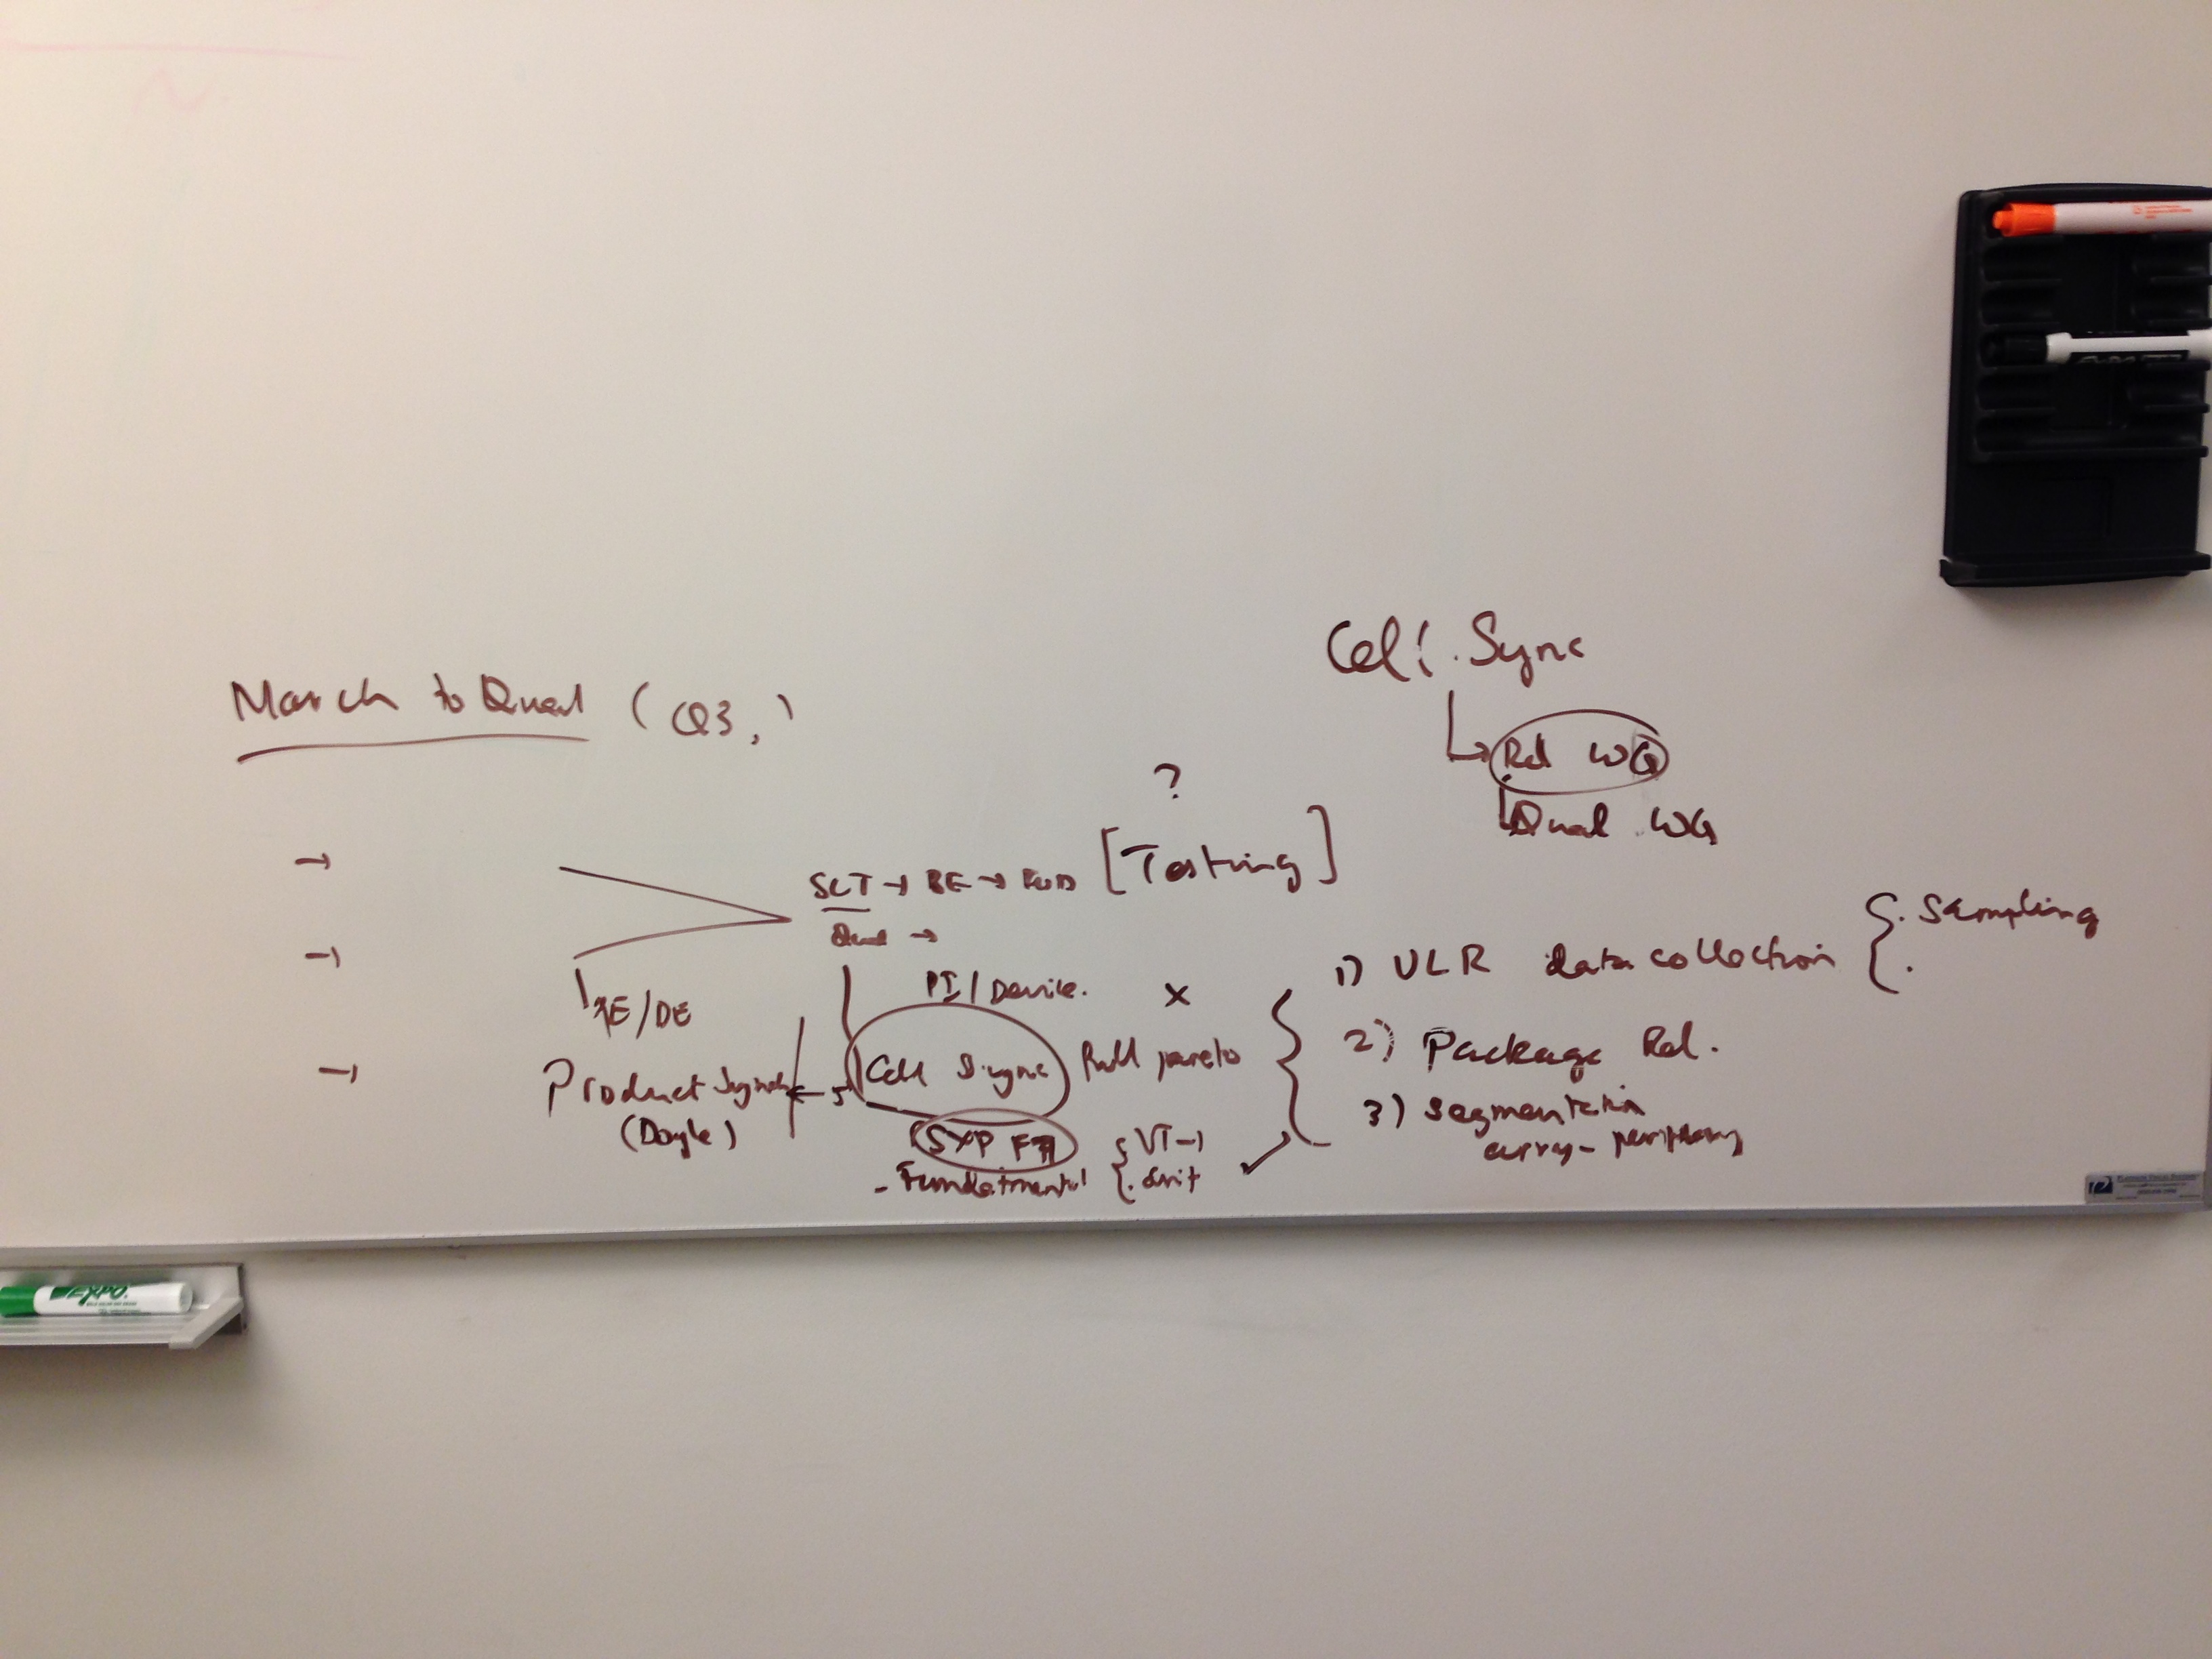 March to Qual (Q3, )
Cell. Sync
Rel WG
Qual WG
?
SCT → BE → [Testing]
Qual →
PE/DE
PI/Device.
x
Product
(Doyle)
Cell Sync
Full pareto
SXP FA
- Fundamental { VT →
1) ULR data collection { . Sampling
2) Package Rel.
3) Segmentation
array - periphery
EXPO